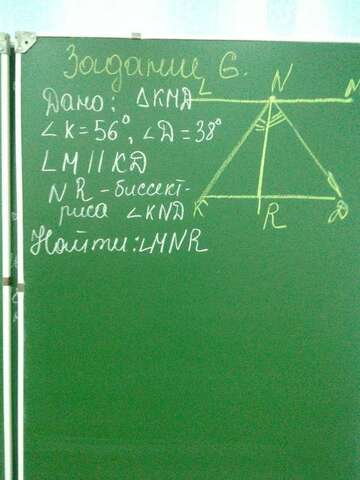 Задание 6.
Дано: △КND
∠К=56°, ∠D=38°
LM || KD
NR - биссект-
риса ∠KND
Найти: ∠MNR
L N M
K R D